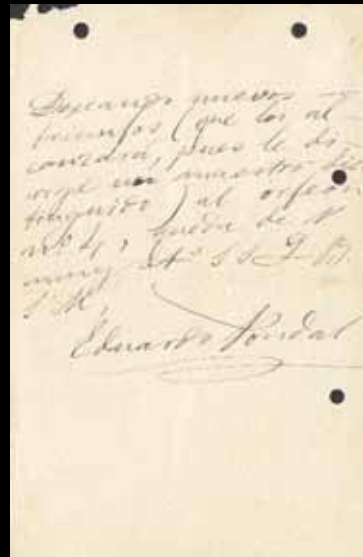 Deseando nuevos
triunfos (que los al
canzará, pues le di
rige un maestro dis
tinguido) al orfeón
nº 4, queda de V.
muy atº s s Q. B.
S. M.
Eduardo Pondal